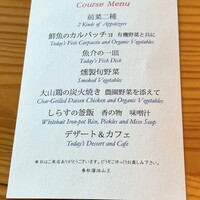 Course Menu
前菜二種
2 Kinds of Appetizers
鮮魚のカルパッチョ 有機野菜と共に
Today's Fish Carpaccio and Organic Vegetables
魚介の一皿
Today's Fish Dish
燻製旬野菜
Smoked Vegetables
大山鶏の炭火焼き 農園野菜を添えて
Char-Grilled Daisen Chicken and Organic Vegetables
しらすの釜飯 香の物 味噌汁
Whitebait Iron-pot Rice, Pickles and Miso Soup
デザート&カフェ
Today's Dessert and Cafe
本日はご来店ありがとうございます。どうぞごゆっくりお楽しみ下さい。